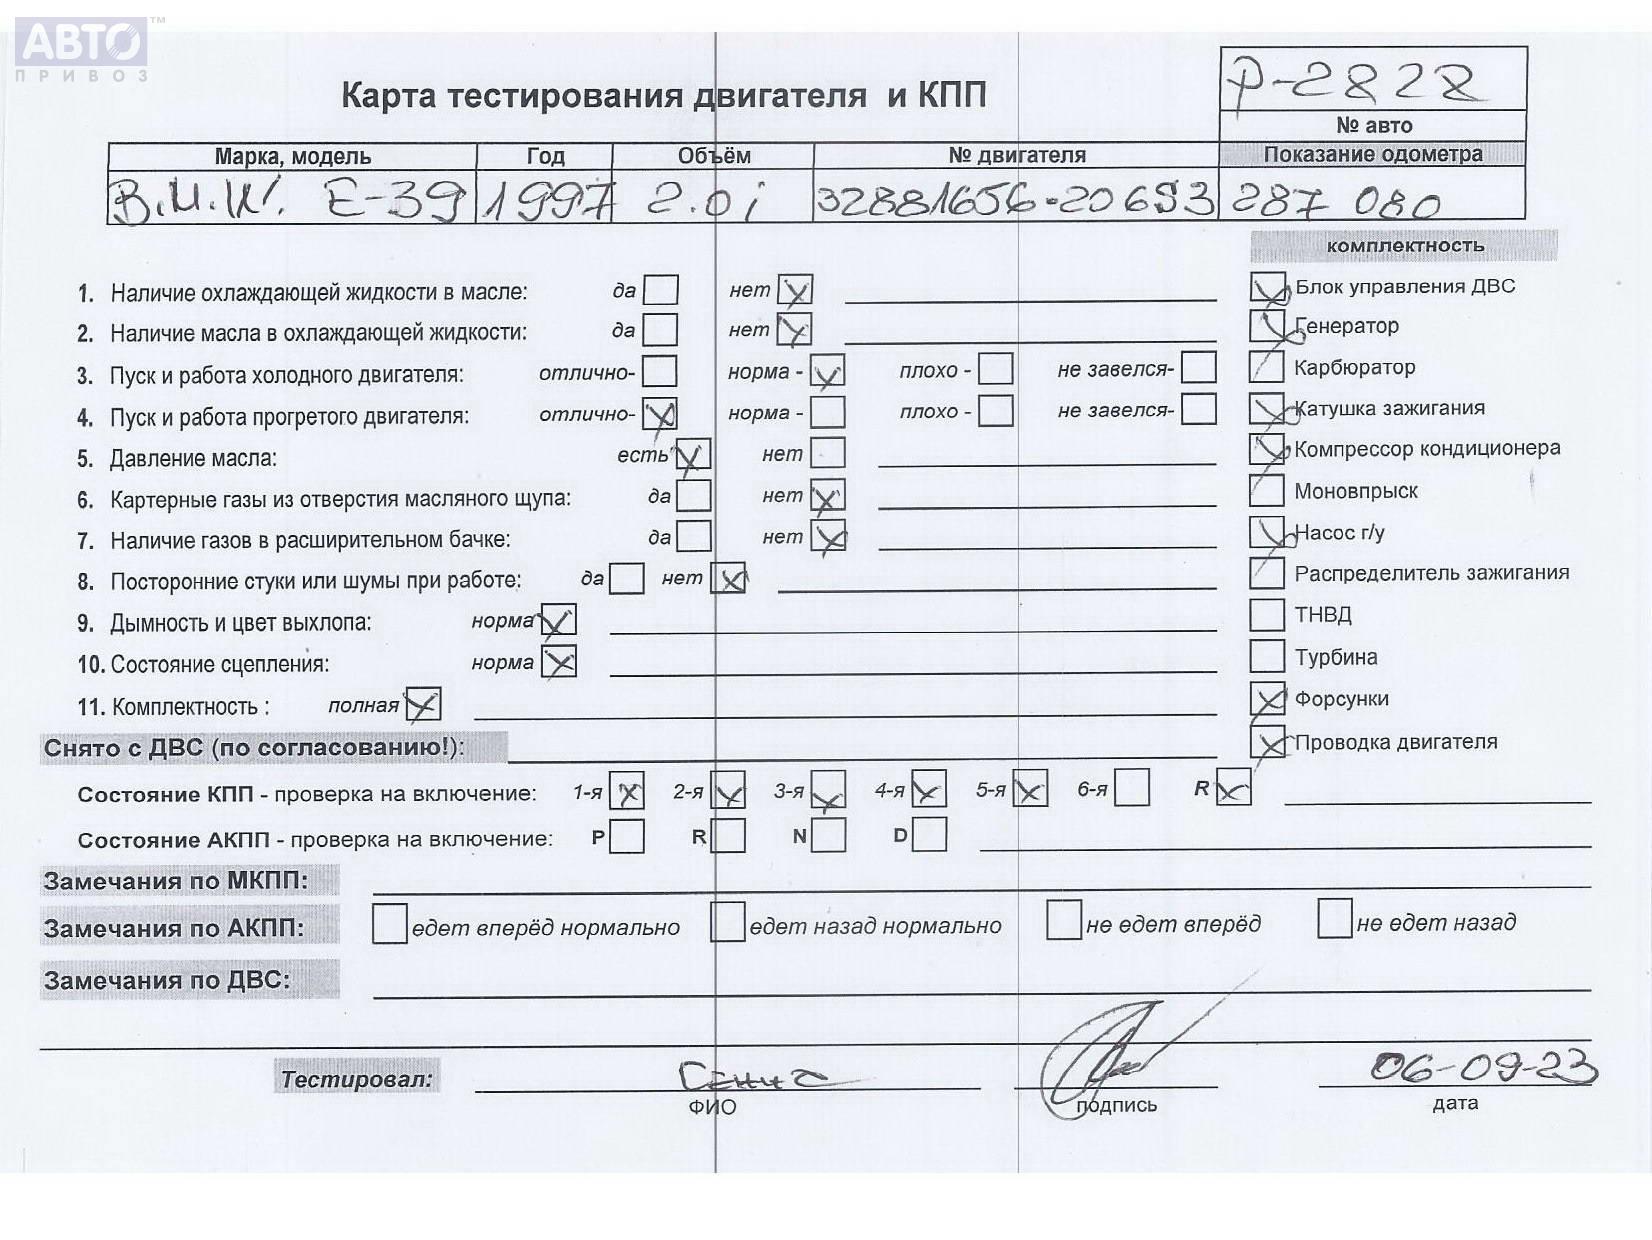 АВТО™
ПРИВОЗ
Р-2828
Карта тестирования двигателя и КПП
№ авто
Марка, модель Год Объём № двигателя Показание одометра
В.М.W. Е-39 1997 2.0i 32881656-20693 287 080
комплектность
1. Наличие охлаждающей жидкости в масле: да нет
Блок управления ДВС
2. Наличие масла в охлаждающей жидкости: да нет
Генератор
3. Пуск и работа холодного двигателя: отлично- норма - плохо - не завелся-
Карбюратор
4. Пуск и работа прогретого двигателя: отлично- норма - плохо - не завелся-
Катушка зажигания
5. Давление масла: есть нет
Компрессор кондиционера
6. Картерные газы из отверстия масляного щупа: да нет
Моновпрыск
7. Наличие газов в расширительном бачке: да нет
Насос г/у
8. Посторонние стуки или шумы при работе: да нет
Распределитель зажигания
9. Дымность и цвет выхлопа: норма
ТНВД
10. Состояние сцепления: норма
Турбина
11. Комплектность : полная
Форсунки
Снято с ДВС (по согласованию!):
Проводка двигателя
Состояние КПП - проверка на включение: 1-я 2-я 3-я 4-я 5-я 6-я R
Состояние АКПП - проверка на включение: P R N D
Замечания по МКПП:
Замечания по АКПП: едет вперёд нормально едет назад нормально не едет вперёд не едет назад
Замечания по ДВС:
Тестировал: 06-09-23
ФИО подпись дата